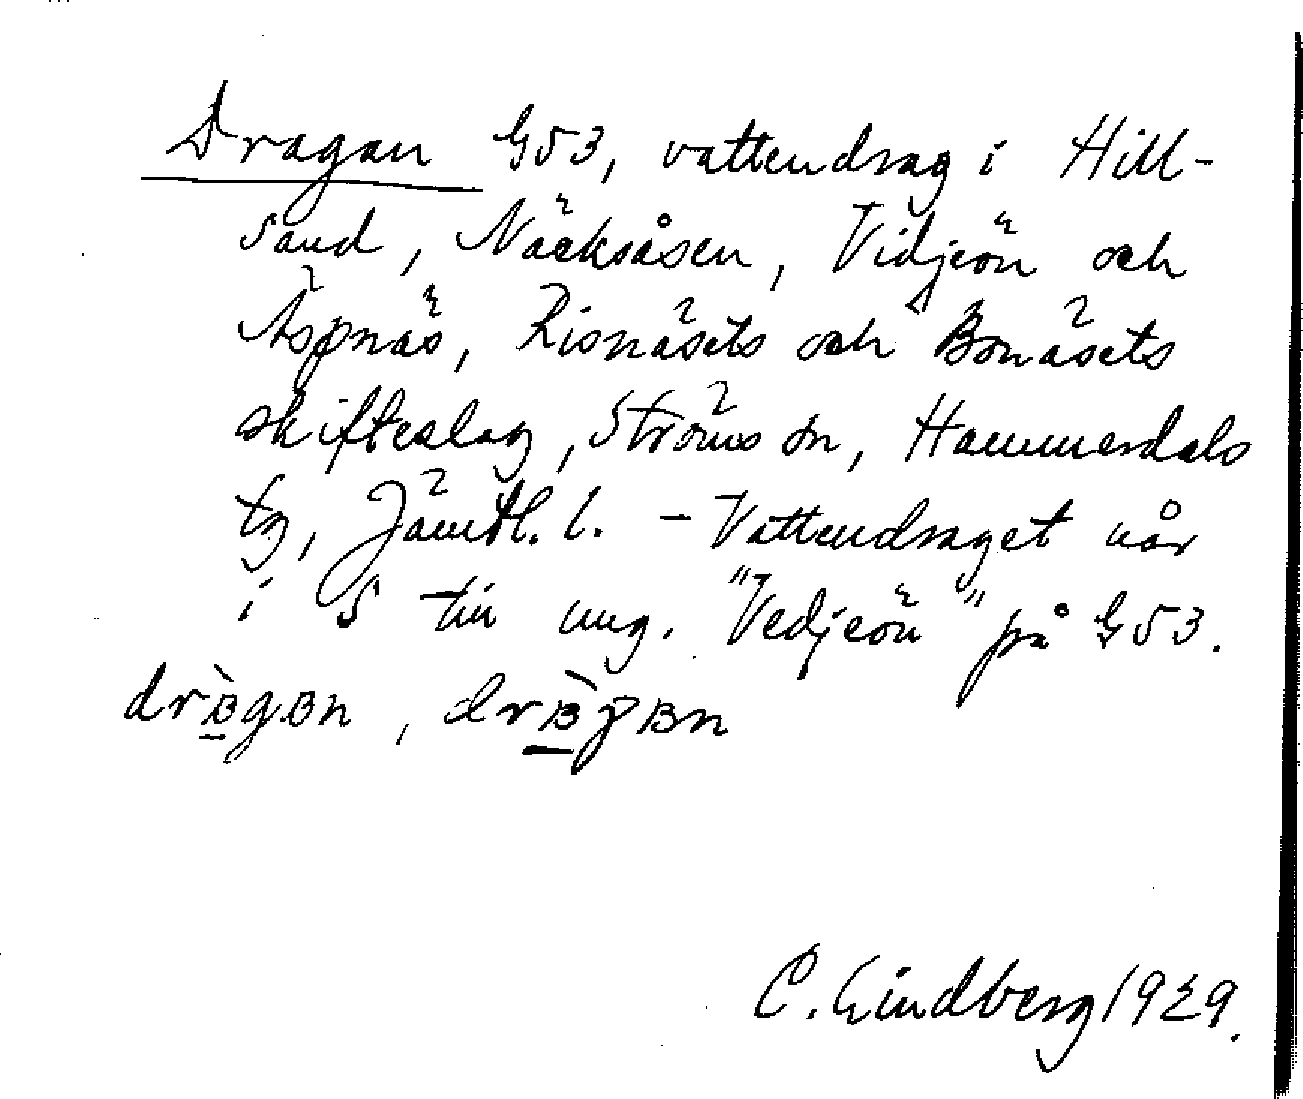 Dragan G53, vattendrag i Hill-
sand, Näcksåsen, Vidjeön och
Äspnäs, Risnäsets och Bonäsets
skifteslag, Ströms sn, Hammerdals
tg, Jämtl. l. – Vattendraget når
i S till ung. "Vedjeön" på G53.
C. Lindberg 1929.